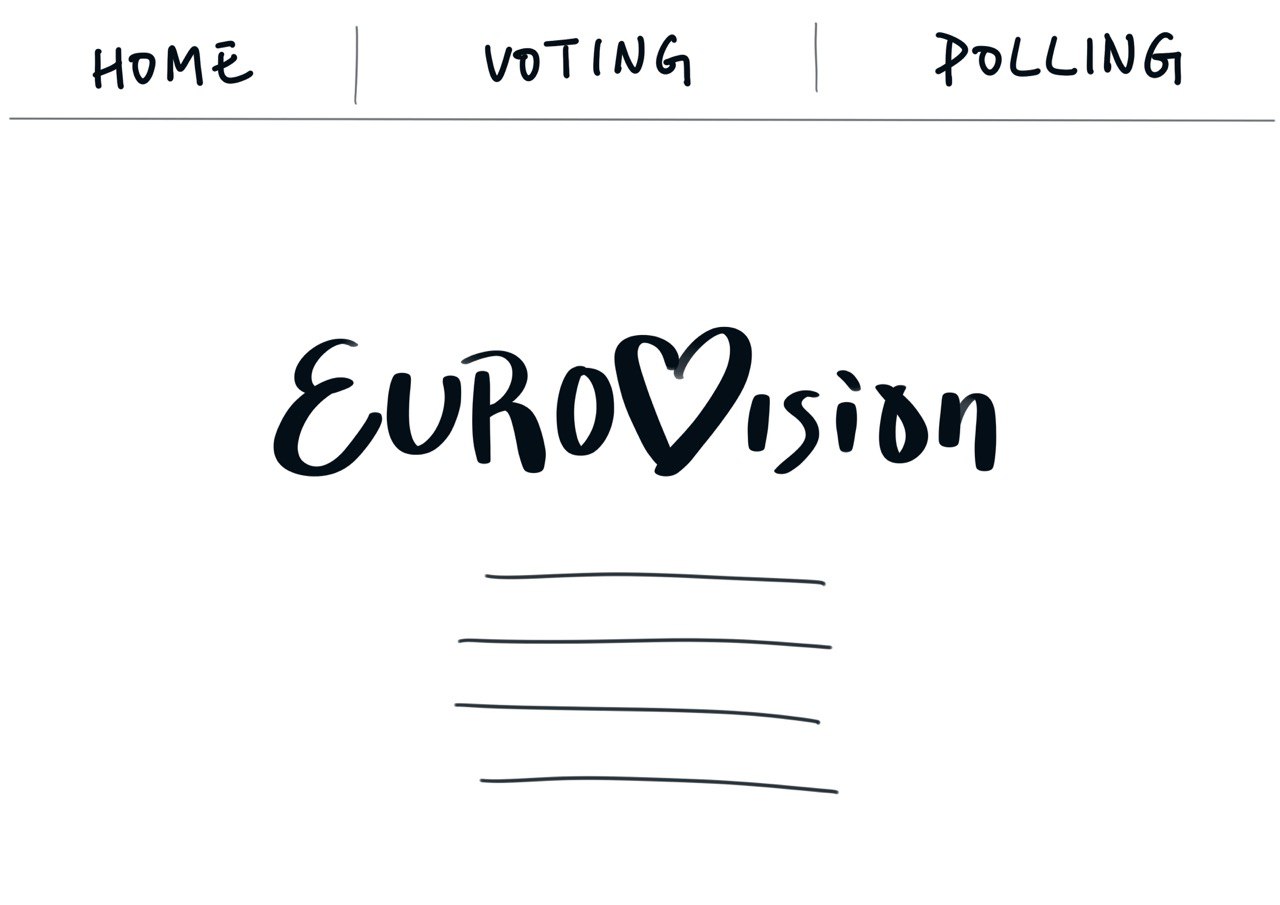 HOME | VOTING | POLLING
EUROVision